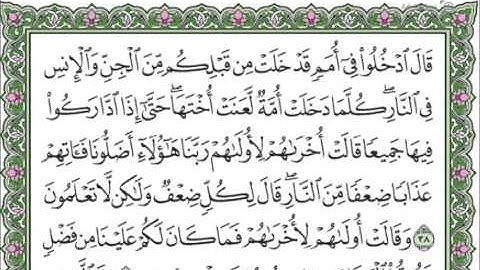 قَالَ ٱدْخُلُوا۟ فِىٓ أُمَمٍ قَدْ خَلَتْ مِن قَبْلِكُم مِّنَ ٱلْجِنِّ وَٱلْإِنسِ
فِى ٱلنَّارِ ۖ كُلَّمَا دَخَلَتْ أُمَّةٌ لَّعَنَتْ أُخْتَهَا ۖ حَتَّىٰٓ إِذَا ٱدَّارَكُوا۟
فِيهَا جَمِيعًا قَالَتْ أُخْرَىٰهُمْ لِأُولَىٰهُمْ رَبَّنَا هَـٰٓؤُلَآءِ أَضَلُّونَا فَـَٔاتِهِمْ
عَذَابًا ضِعْفًا مِّنَ ٱلنَّارِ ۖ قَالَ لِكُلٍّ ضِعْفٌ وَلَـٰكِن لَّا تَعْلَمُونَ
﴿٣٨﴾ وَقَالَتْ أُولَىٰهُمْ لِأُخْرَىٰهُمْ فَمَا كَانَ لَكُمْ عَلَيْنَا مِن فَضْلٍ